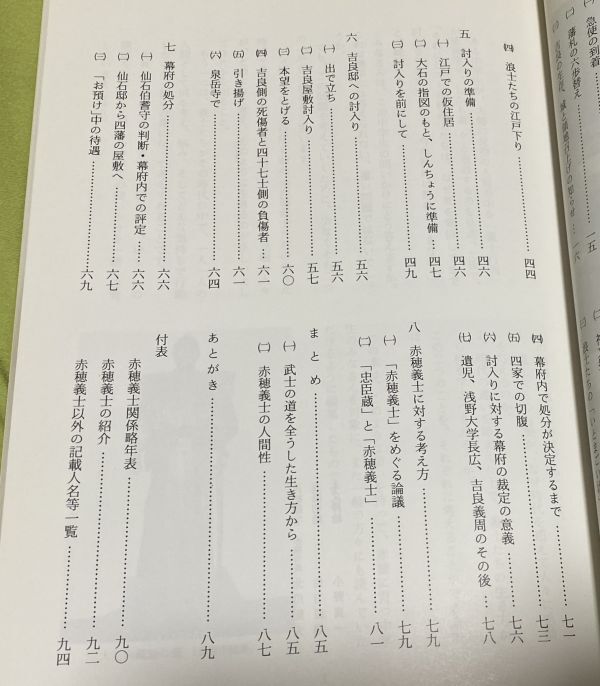 ㈠ 急使の到着
㈡ 藩札の六歩替え
一五
一六
㈣ 浪士たちの江戸下り……四四
五 討入りの準備……四六
㈠ 江戸での仮住居……四六
㈡ 大石の指図のもと、しんちょうに準備…四七
㈢ 討入りを前にして……四九
六 吉良邸への討入り……五六
㈠ 出で立ち……五六
㈡ 吉良屋敷討入り……五七
㈢ 本望をとげる……六〇
㈣ 吉良側の死傷者と四十七士側の負傷者…六一
㈤ 引き揚げ……六一
㈥ 泉岳寺で……六四
七 幕府の処分……六六
㈠ 仙石伯耆守の判断・幕府内での評定……六六
㈡ 仙石邸から四藩の屋敷へ……六七
㈢ 「お預け」中の待遇……六九
㈣ 幕府内で処分が決定するまで……七一
㈤ 四家での切腹……七三
㈥ 討入りに対する幕府の裁定の意義……七六
㈦ 遺児、浅野大学長広、吉良義周のその後…七八
八 赤穂義士に対する考え方……七九
㈠ 「赤穂義士」をめぐる論議……七九
㈡ 「忠臣蔵」と「赤穂義士」……八一
まとめ……八五
㈠ 武士の道を全うした生き方から……八五
㈡ 赤穂義士の人間性……八七
あとがき……八九
付表
赤穂義士関係略年表……九〇
赤穂義士の紹介……九二
赤穂義士以外の記載人名等一覧……九四